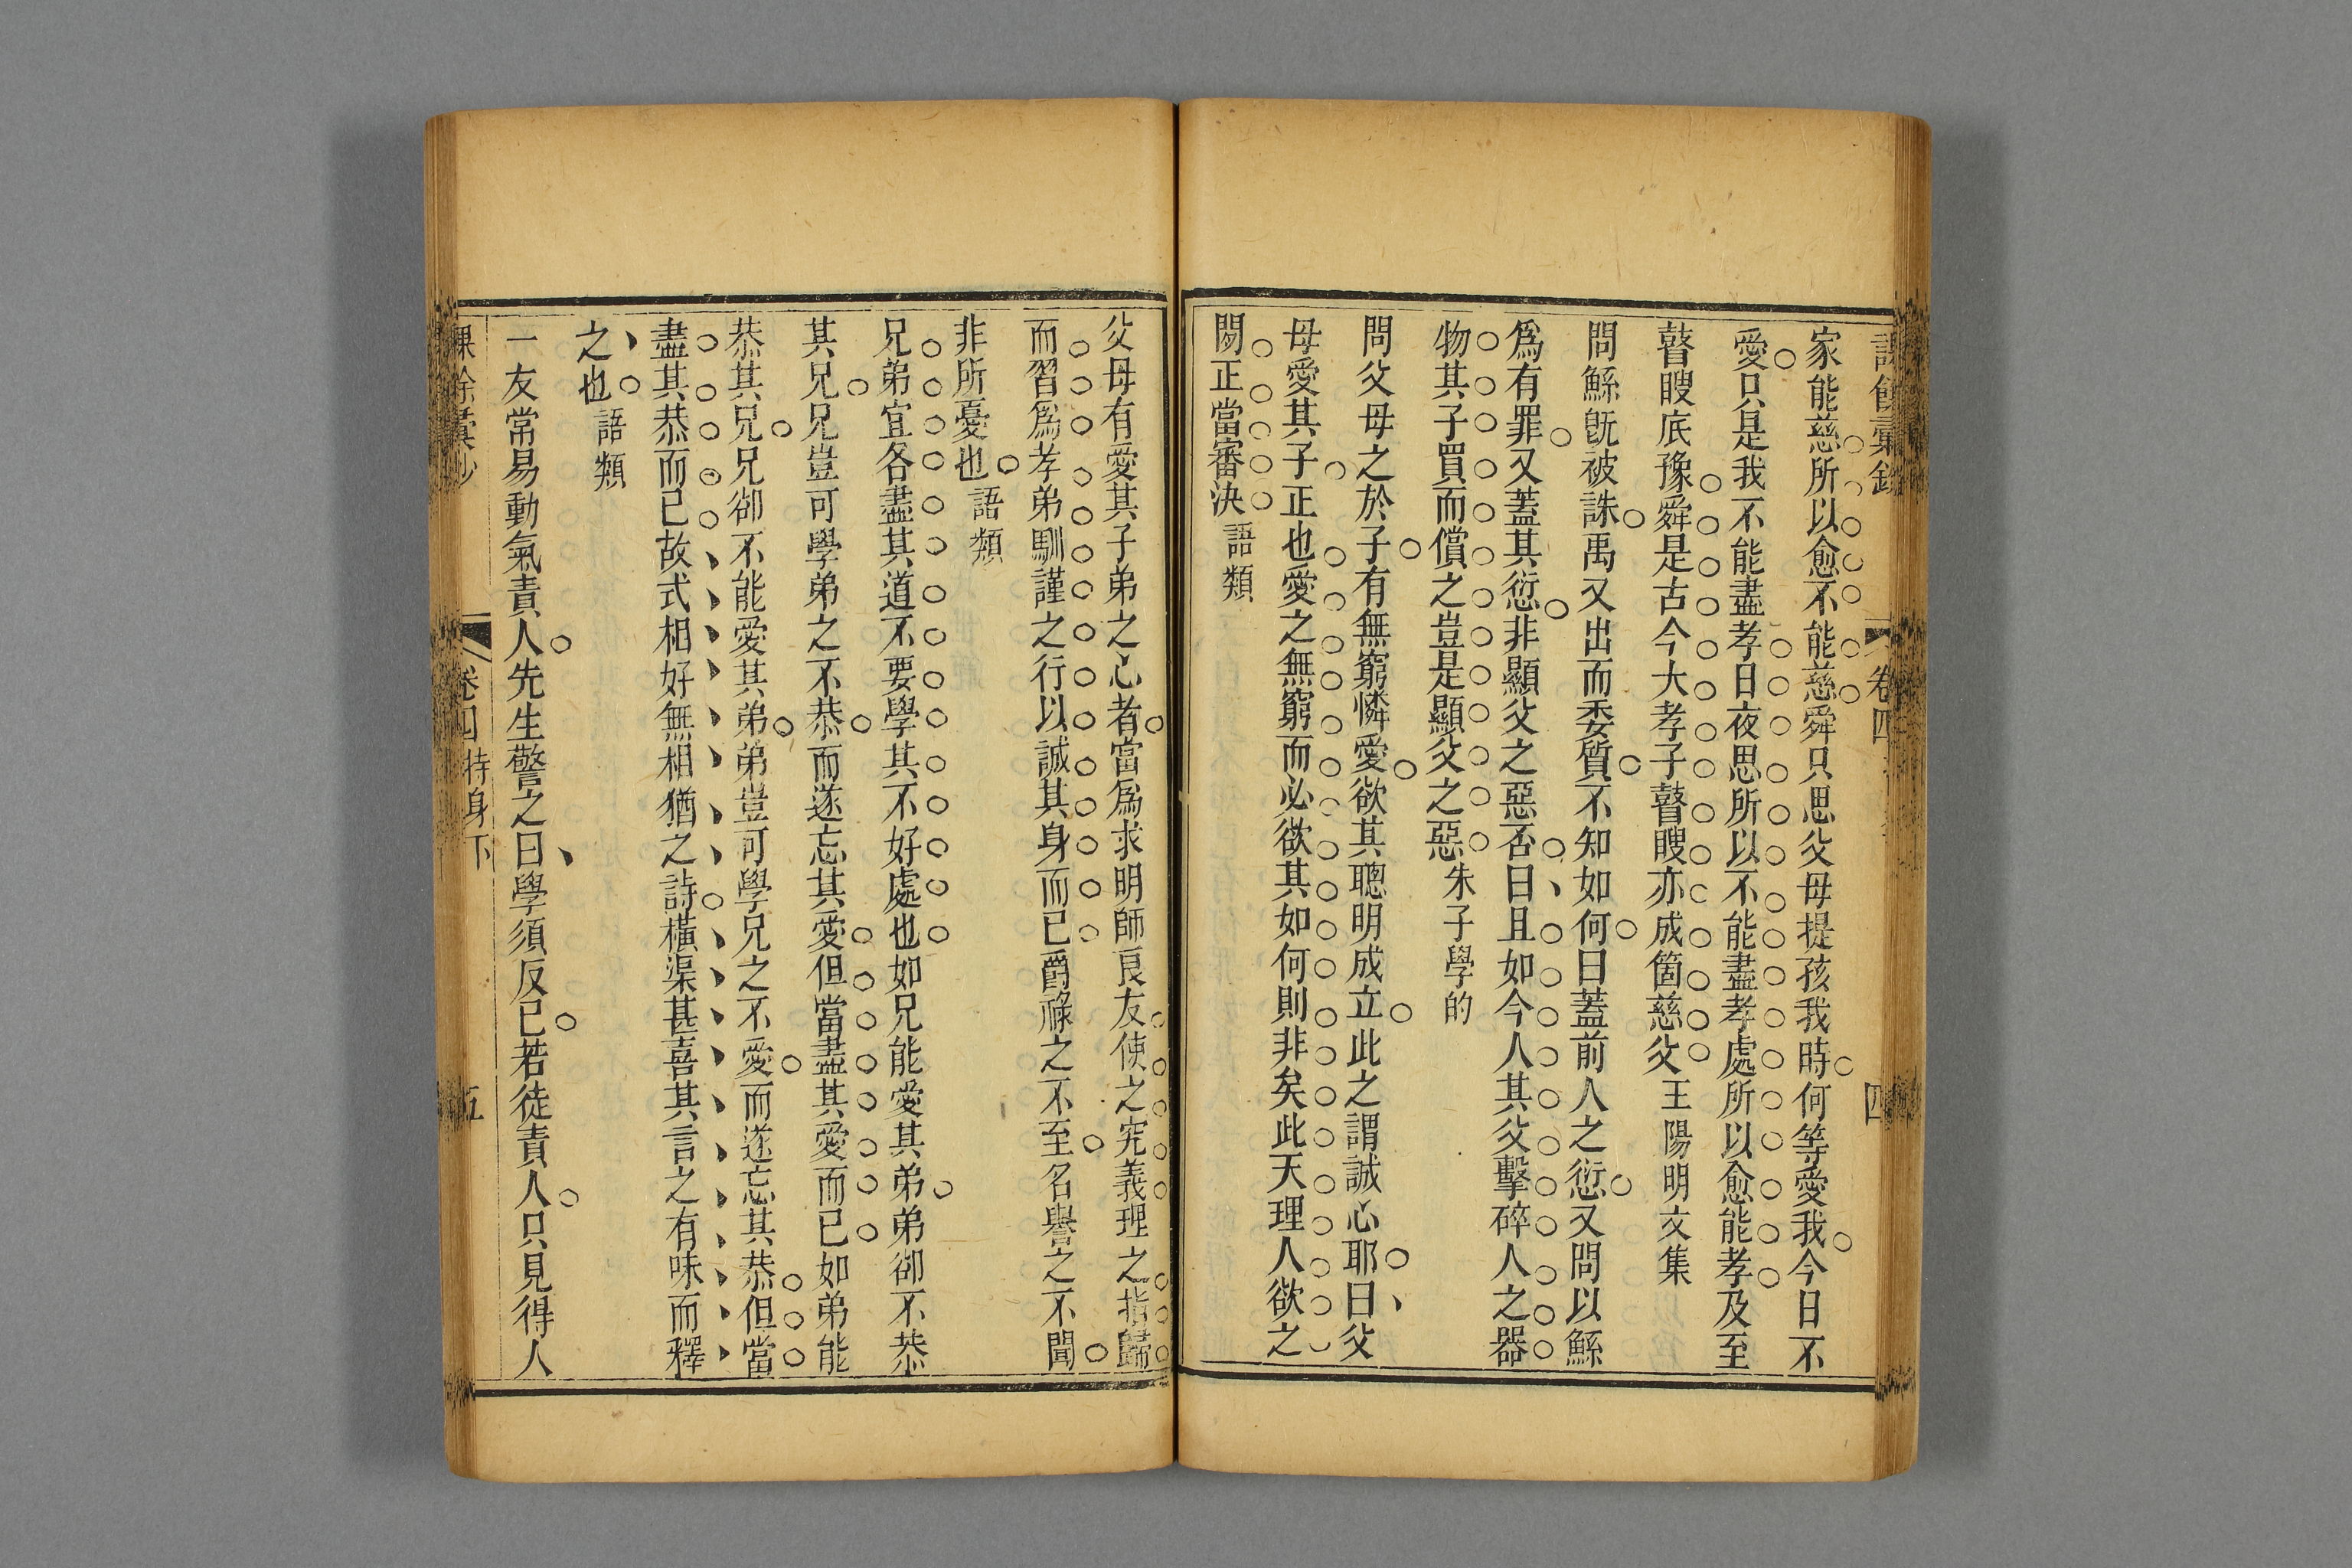 卷四
四
家能慈所以愈不能慈舜只思父母提孩我時何等愛我今日不
愛只是我不能盡孝日夜思所以不能盡孝處所以愈能孝及至
瞽瞍底豫舜是古今大孝子瞽瞍亦成箇慈父王陽明文集
問鯀旣被誅禹又出而委質不知如何曰蓋前人之愆又問以鯀
爲有罪又蓋其愆非顯父之惡否曰且如今人其父擊碎人之器
物其子買而償之豈是顯父之惡朱子學的
問父母之於子有無窮憐愛欲其聰明成立此之謂誠心耶曰父
母愛其子正也愛之無窮而必欲其如何則非矣此天理人欲之
間正當審決語類
父母有愛其子弟之心者當爲求明師良友使之究義理之指歸
而習爲孝弟馴謹之行以誠其身而已爵祿之不至名譽之不聞
非所憂也語類
兄弟宜各盡其道不要學其不好處也如兄能愛其弟弟卻不恭
其兄兄豈可學弟之不恭而遂忘其愛但當盡其愛而已如弟能
恭其兄兄卻不能愛其弟弟豈可學兄之不愛而遂忘其恭但當
盡其恭而已故式相好無相猶之詩橫渠甚喜其言之有味而釋
之也語類
一友常易動氣責人先生警之曰學須反己若徒責人只見得人
卷四持身下
五